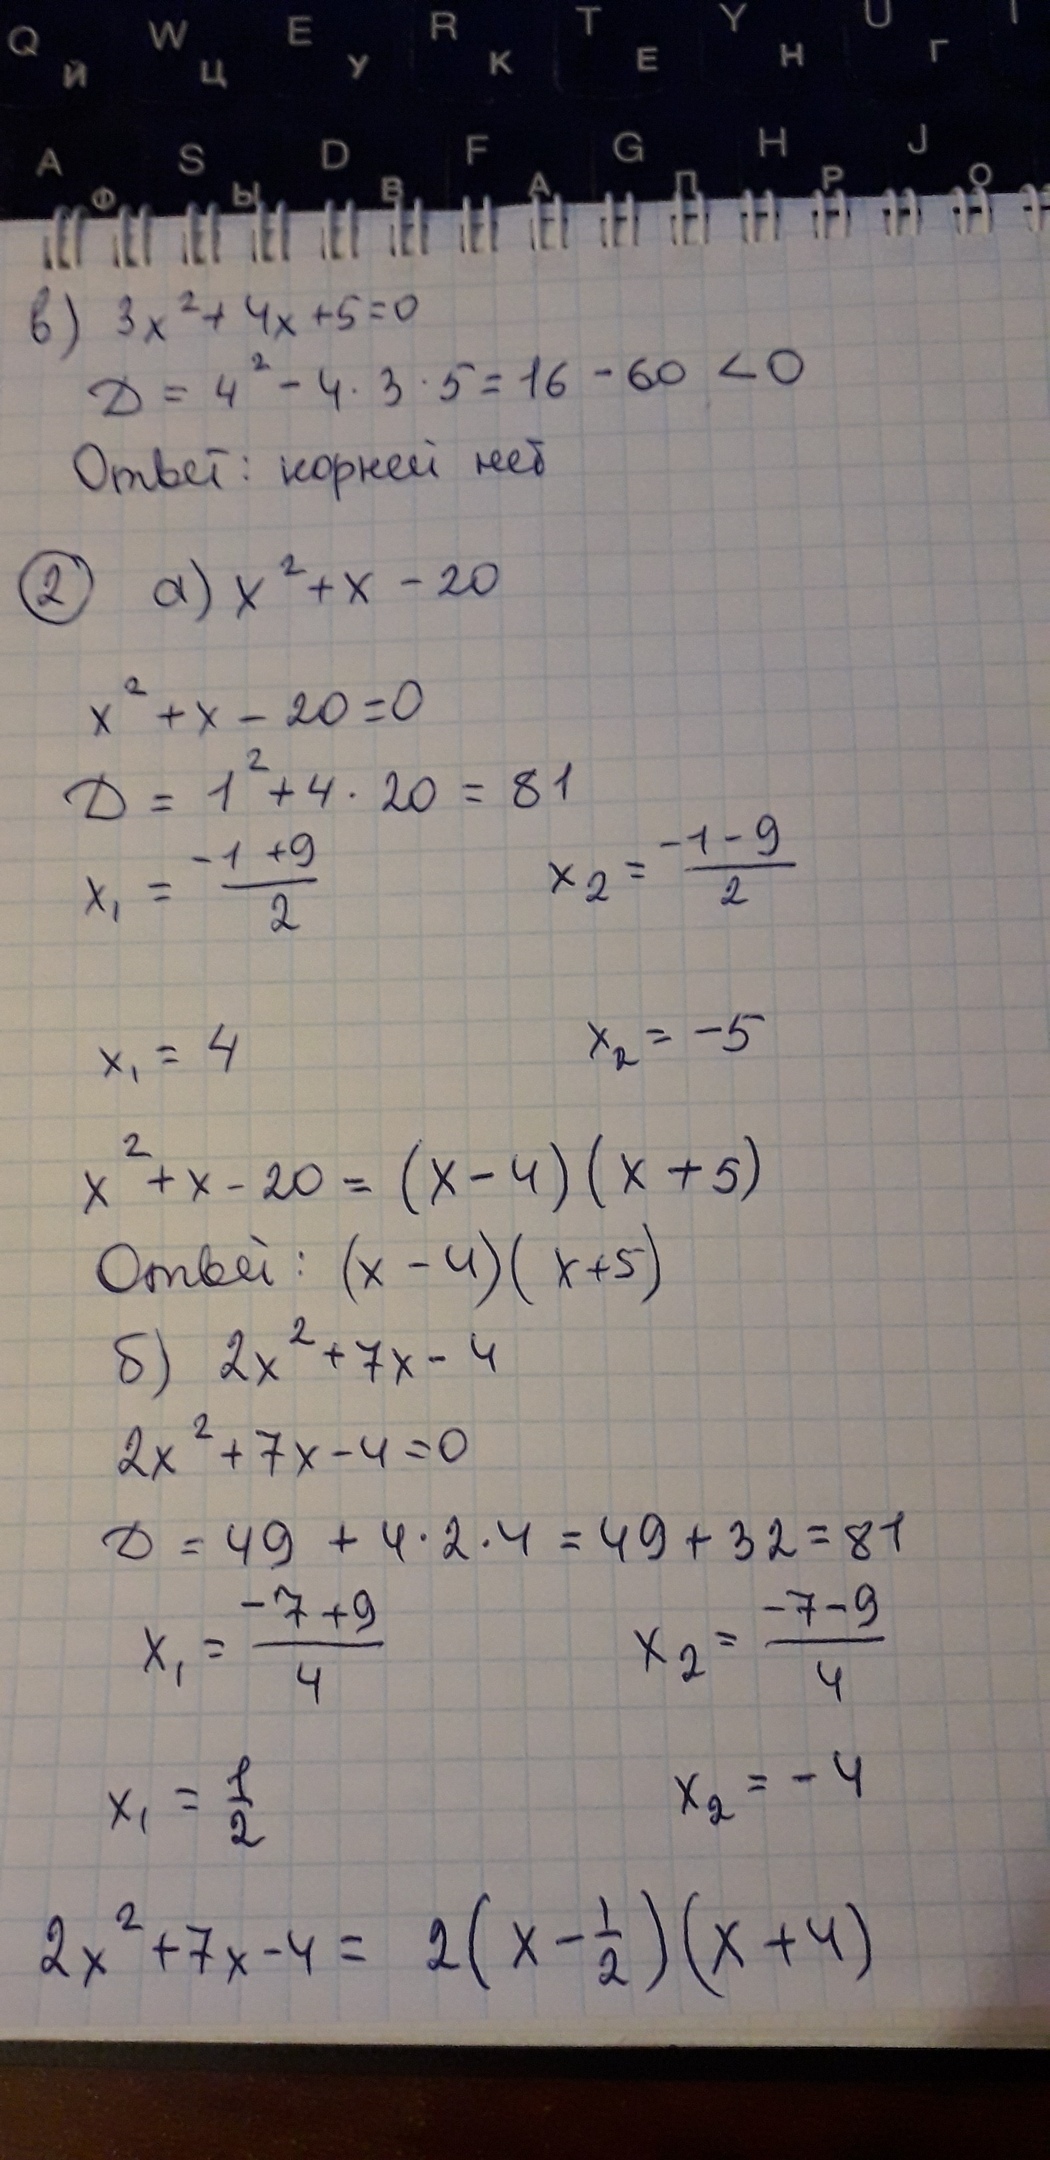 Q W E R T Y U I
Й Ц У К Е Н Г
A S D F G H J
Ф Ы В А П Р О
в) 3x² + 4x + 5 = 0
D = 4² - 4 · 3 · 5 = 16 - 60 < 0
Ответ: корней нет
2 а) x² + x - 20
x² + x - 20 = 0
D = 1² + 4 · 20 = 81
x₁ = (-1 + 9)/2 x₂ = (-1 - 9)/2
x₁ = 4 x₂ = -5
x² + x - 20 = (x - 4)(x + 5)
Ответ: (x - 4)(x + 5)
б) 2x² + 7x - 4
2x² + 7x - 4 = 0
D = 49 + 4 · 2 · 4 = 49 + 32 = 81
x₁ = (-7 + 9)/4 x₂ = (-7 - 9)/4
x₁ = 1/2 x₂ = -4
2x² + 7x - 4 = 2(x - 1/2)(x + 4)